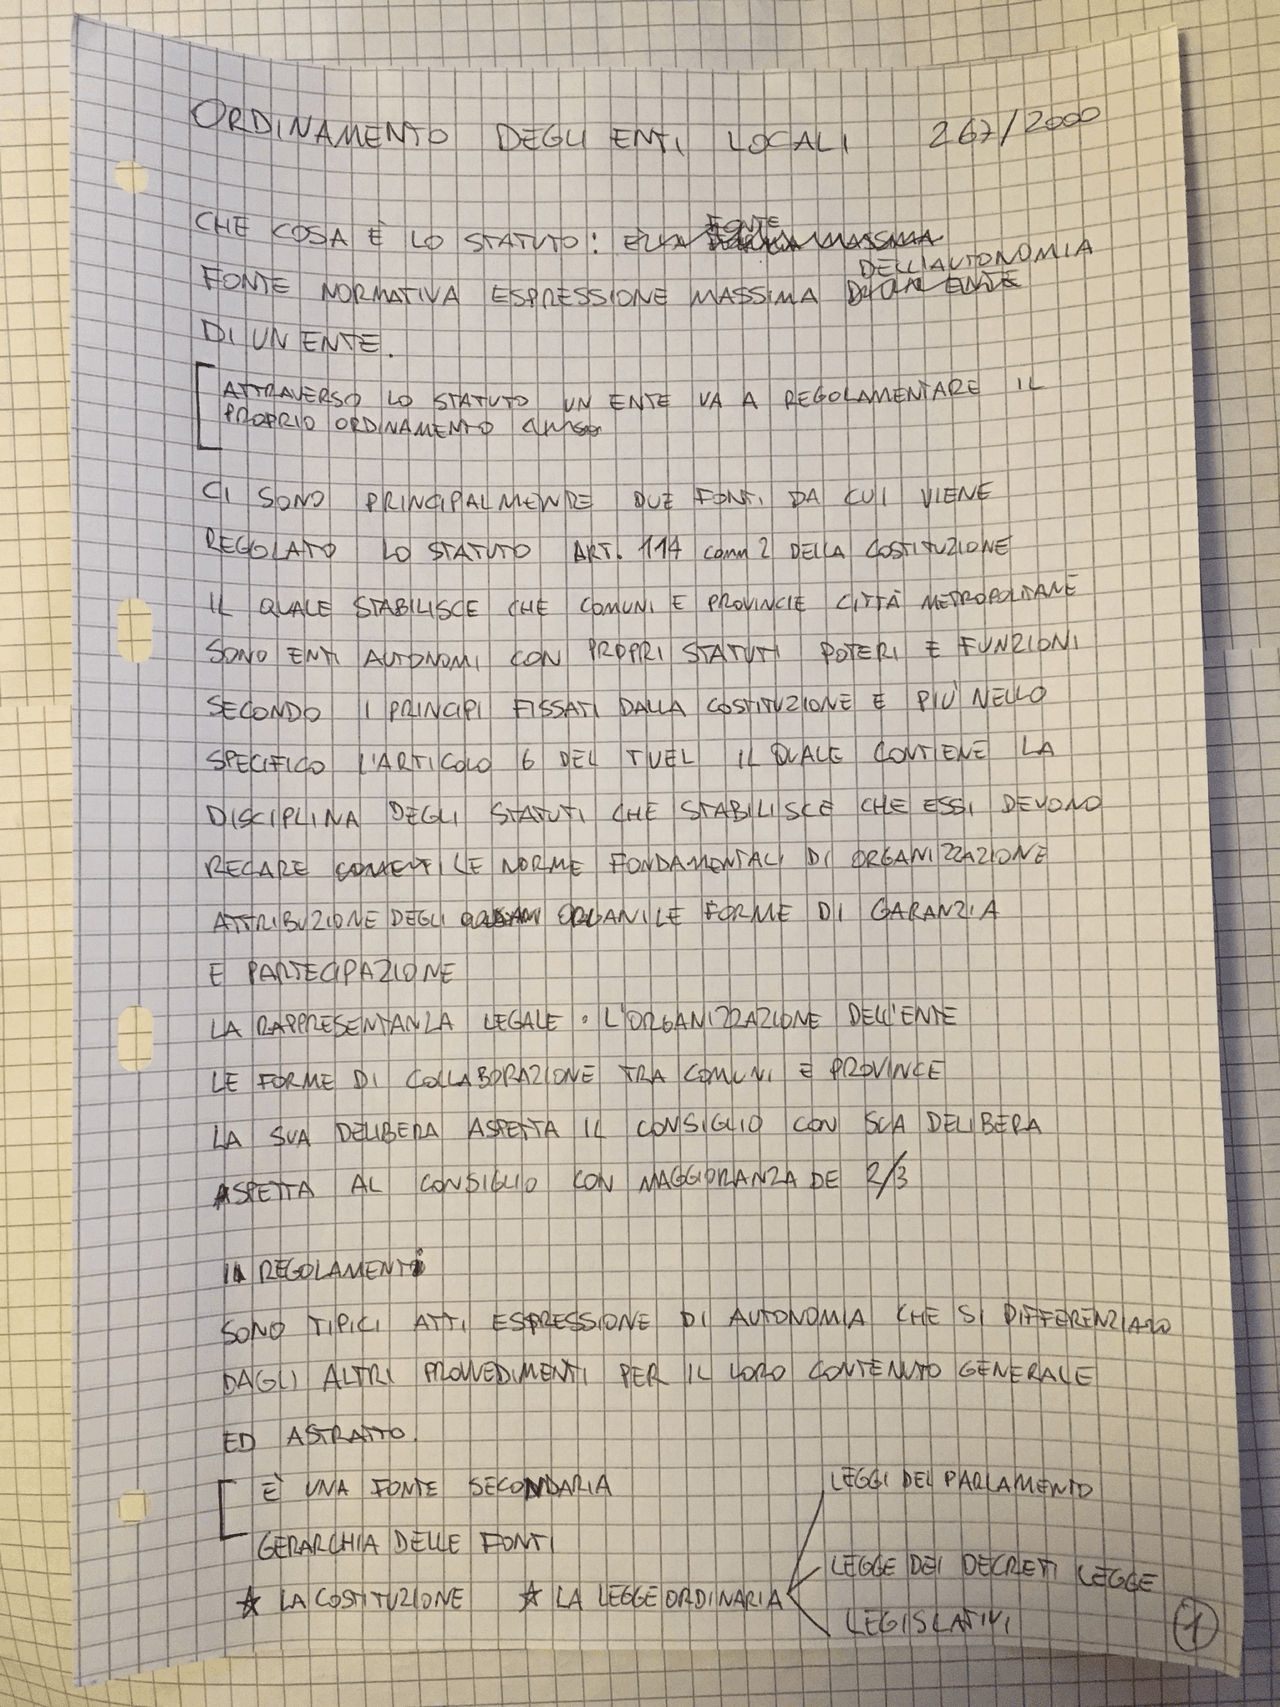 ORDINAMENTO DEGLI ENTI LOCALI 267/2000
CHE COSA È LO STATUTO: È LA FONTE MASSIMA
FONTE NORMATIVA ESPRESSIONE MASSIMA DELL'AUTONOMIA
DI UN ENTE.
ATTRAVERSO LO STATUTO UN ENTE VA A REGOLAMENTARE IL
PROPRIO ORDINAMENTO
CI SONO PRINCIPALMENTE DUE FONTI DA CUI VIENE
REGOLATO LO STATUTO ART. 114 comm 2 DELLA COSTITUZIONE
IL QUALE STABILISCE CHE COMUNI E PROVINCIE CITTÀ METROPOLITANE
SONO ENTI AUTONOMI CON PROPRI STATUTI POTERI E FUNZIONI
SECONDO I PRINCIPI FISSATI DALLA COSTITUZIONE E PIÙ NELLO
SPECIFICO L'ARTICOLO 6 DEL TUEL IL QUALE CONTIENE LA
DISCIPLINA DEGLI STATUTI CHE STABILISCE CHE ESSI DEVONO
RECARE LE NORME FONDAMENTALI DI ORGANIZZAZIONE
ATTRIBUZIONE DEGLI ORGANI LE FORME DI GARANZIA
E PARTECIPAZIONE
LA RAPPRESENTANZA LEGALE • L'ORGANIZZAZIONE DELL'ENTE
LE FORME DI COLLABORAZIONE TRA COMUNI E PROVINCE
LA SUA DELIBERA ASPETTA IL CONSIGLIO CON SUA DELIBERA
ASPETTA AL CONSIGLIO CON MAGGIORANZA DE 2/3
I REGOLAMENTI
SONO TIPICI ATTI ESPRESSIONE DI AUTONOMIA CHE SI DIFFERENZIANO
DAGLI ALTRI PROVVEDIMENTI PER IL LORO CONTENUTO GENERALE
ED ASTRATTO.
È UNA FONTE SECONDARIA
GERARCHIA DELLE FONTI
LEGGI DEL PARLAMENTO
☆ LA COSTITUZIONE ☆ LA LEGGE ORDINARIA
LEGGE DEI DECRETI LEGGE
LEGISLATIVI
1